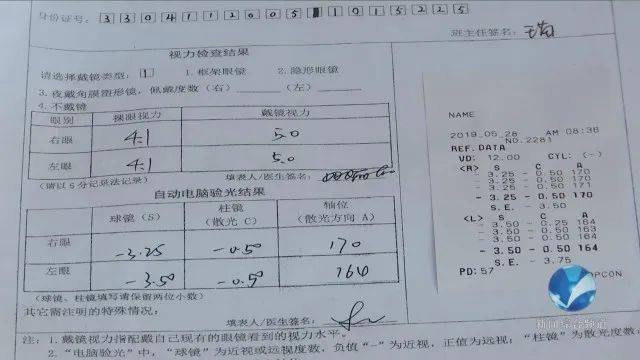 身份证号：
班主任签名：
视力检查结果
请选择戴镜类型：1 1.框架眼镜 2.隐形眼镜
3.夜戴角膜塑形镜，佩戴度数（右）（左）
4.不戴镜
眼别 裸眼视力 戴镜视力
右眼 4.1 5.0
左眼 4.1 5.0
（请以5分记录法记录） 填表人/医生签名：
自动电脑验光结果
球镜（S） 柱镜（散光C） 轴位（散光方向A）
右眼 -3.25 -0.50 170
左眼 -3.50 -0.50 164
（球镜、柱镜填写请保留两位小数）
其它需注明的特殊情况：
填表人/医生签名：
注：1.戴镜视力指配戴自己现有的眼镜看到的视力水平。
2.“电脑验光”中，“球镜”为近视或远视度数，负值“-”为近视，正值为远视；“柱镜”为散光度
NAME
2019_05_28 AM 08:36
NO.2281
REF.DATA
VD: 12.00 CYL: (-)
<R> S C A
- 3.25 - 0.50 170
- 3.25 - 0.50 171
- 3.25 - 0.50 170
- 3.25 - 0.50 170
S.E. - 3.50
<L> S C A
- 3.50 - 0.25 164
- 3.50 - 0.50 163
- 3.50 - 0.50 164
- 3.50 - 0.50 164
S.E. - 3.75
PD: 57
TOPCON